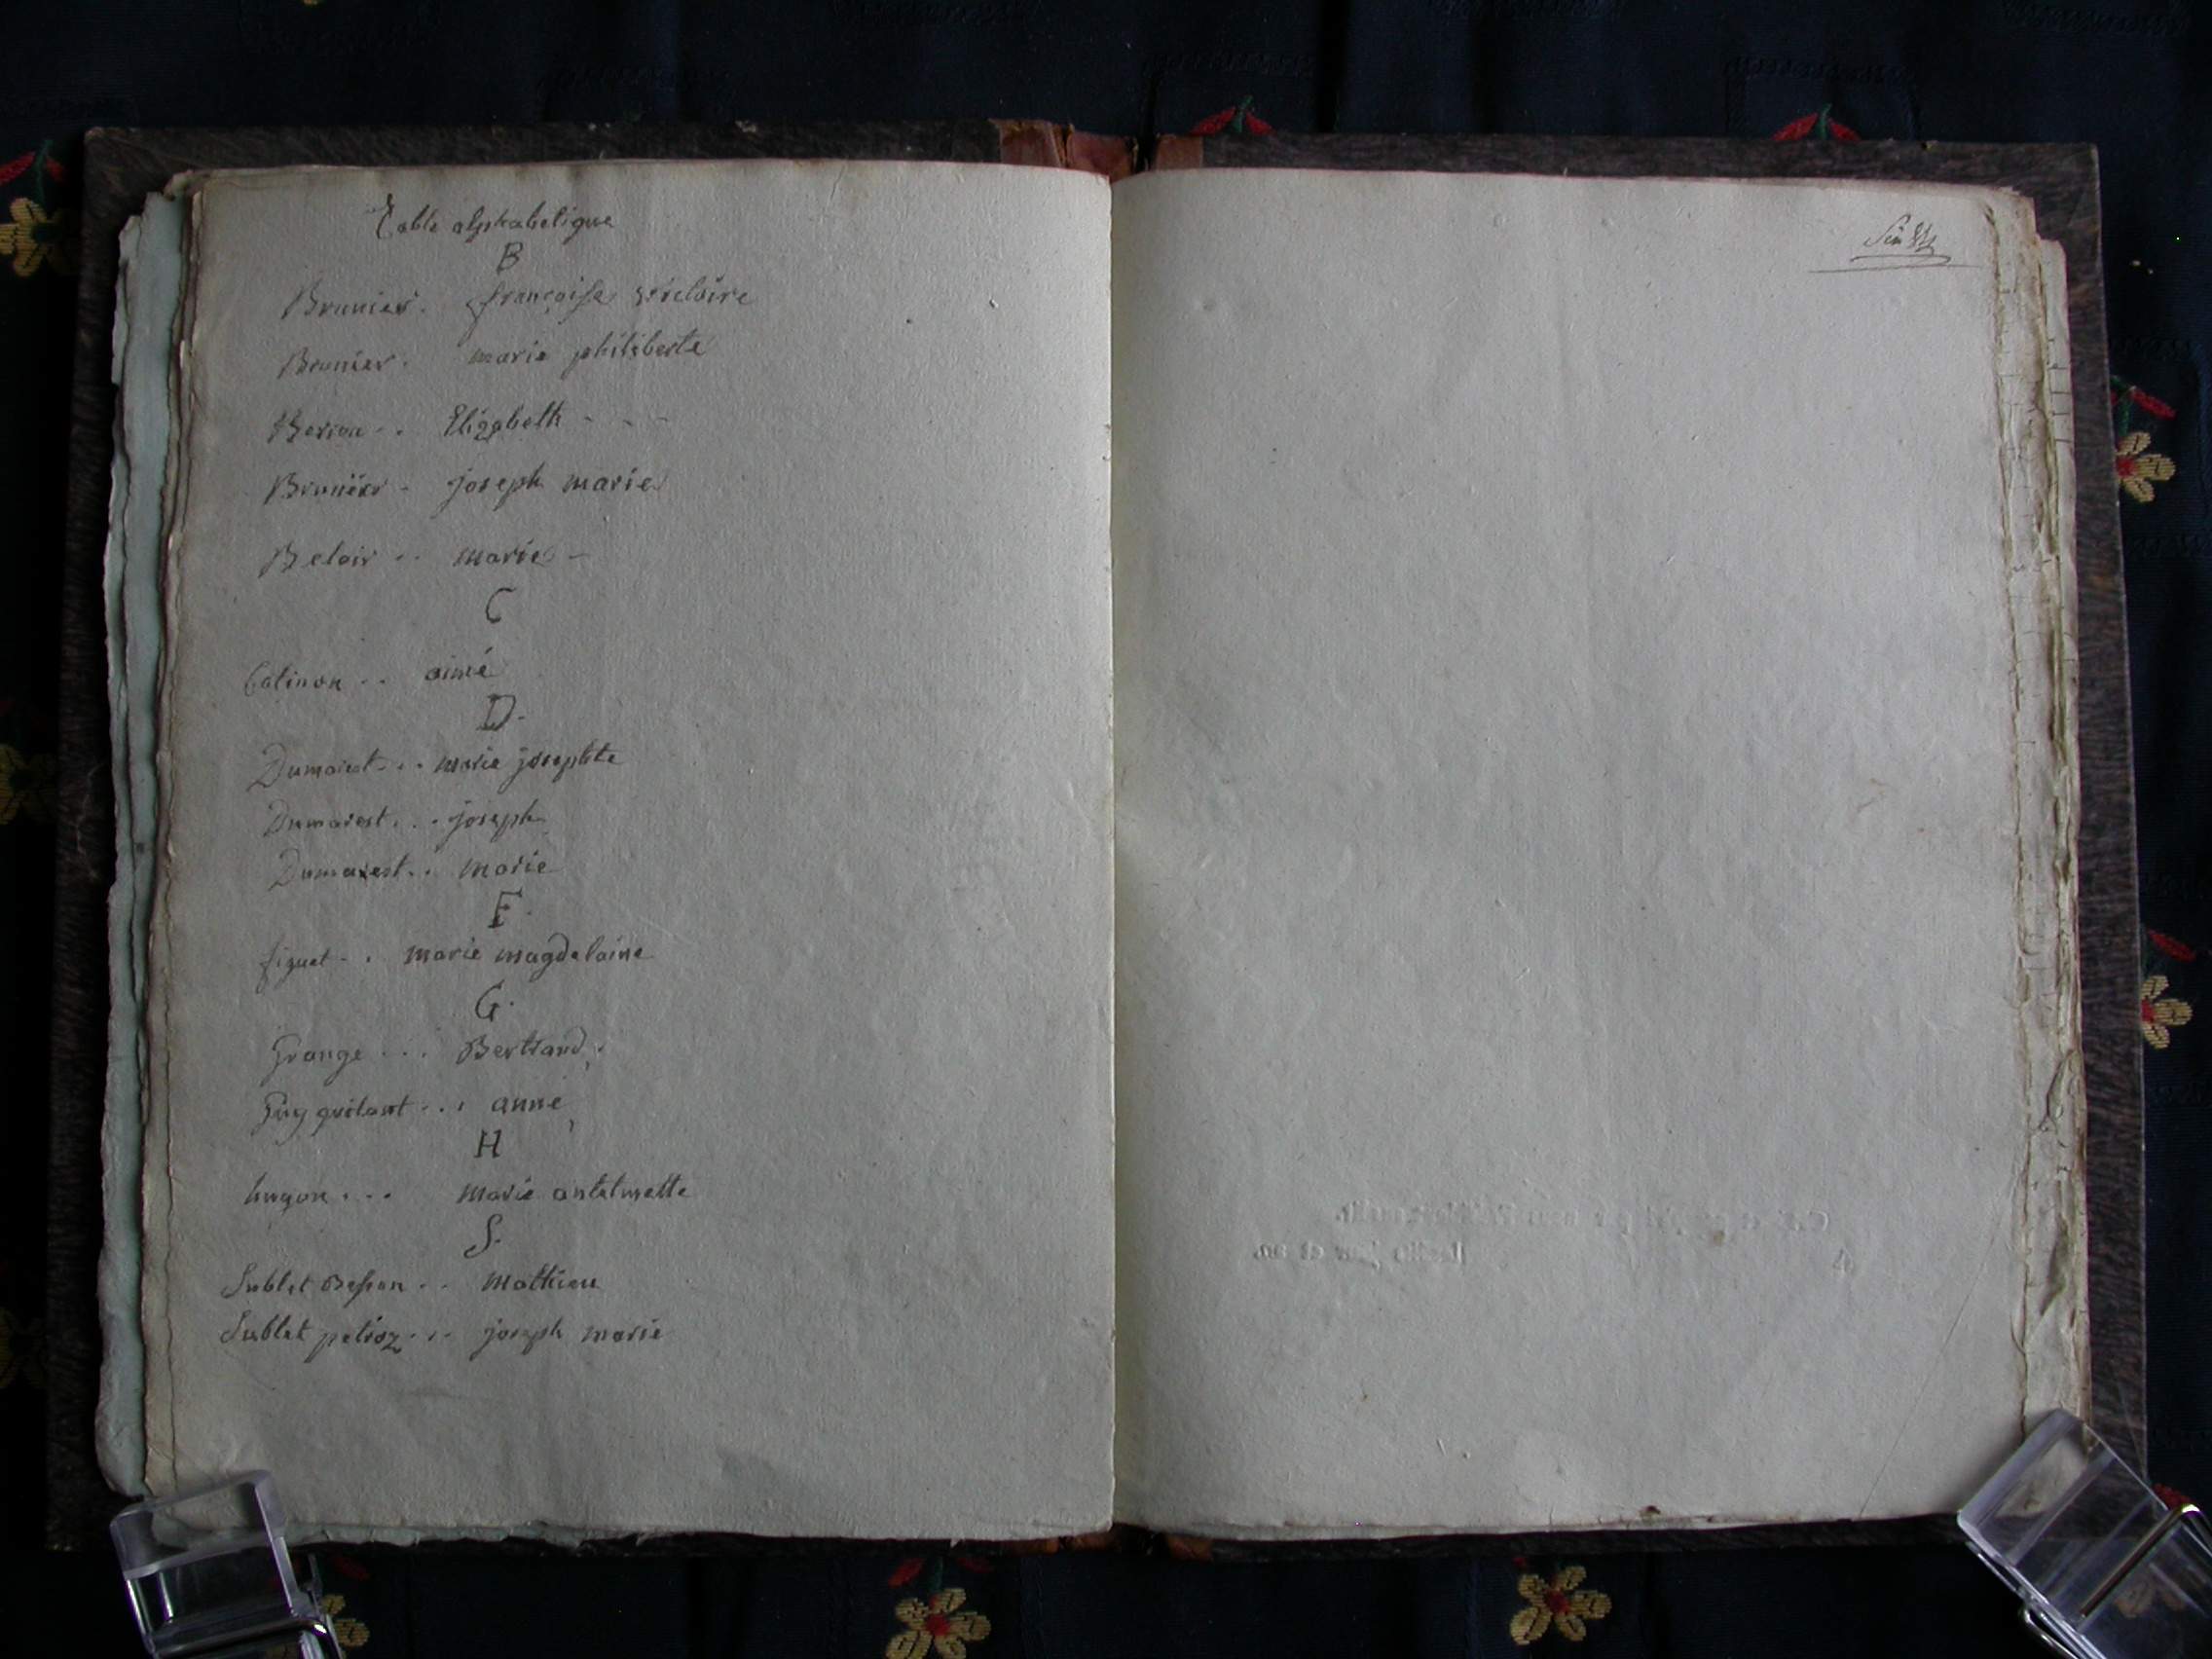 Table alphabetique
B
Brunier. françoise victoire
Brunier. marie philiberte
Berion - . Elizabeth - - -
Brunier - joseph marie
Beloir - . marie -
C
Catinon . . aimé
D.
Dumarest - . . marie josephte
Dumarest . . . joseph
Dumarest . . marie
F.
figuet - . marie magdelaine
G.
Grange . . . Bertrand .
Guy . . . anne
H
hugon . . . marie
S.
Sublet Besson . . mathieu
Sublet petioz . . . joseph marie